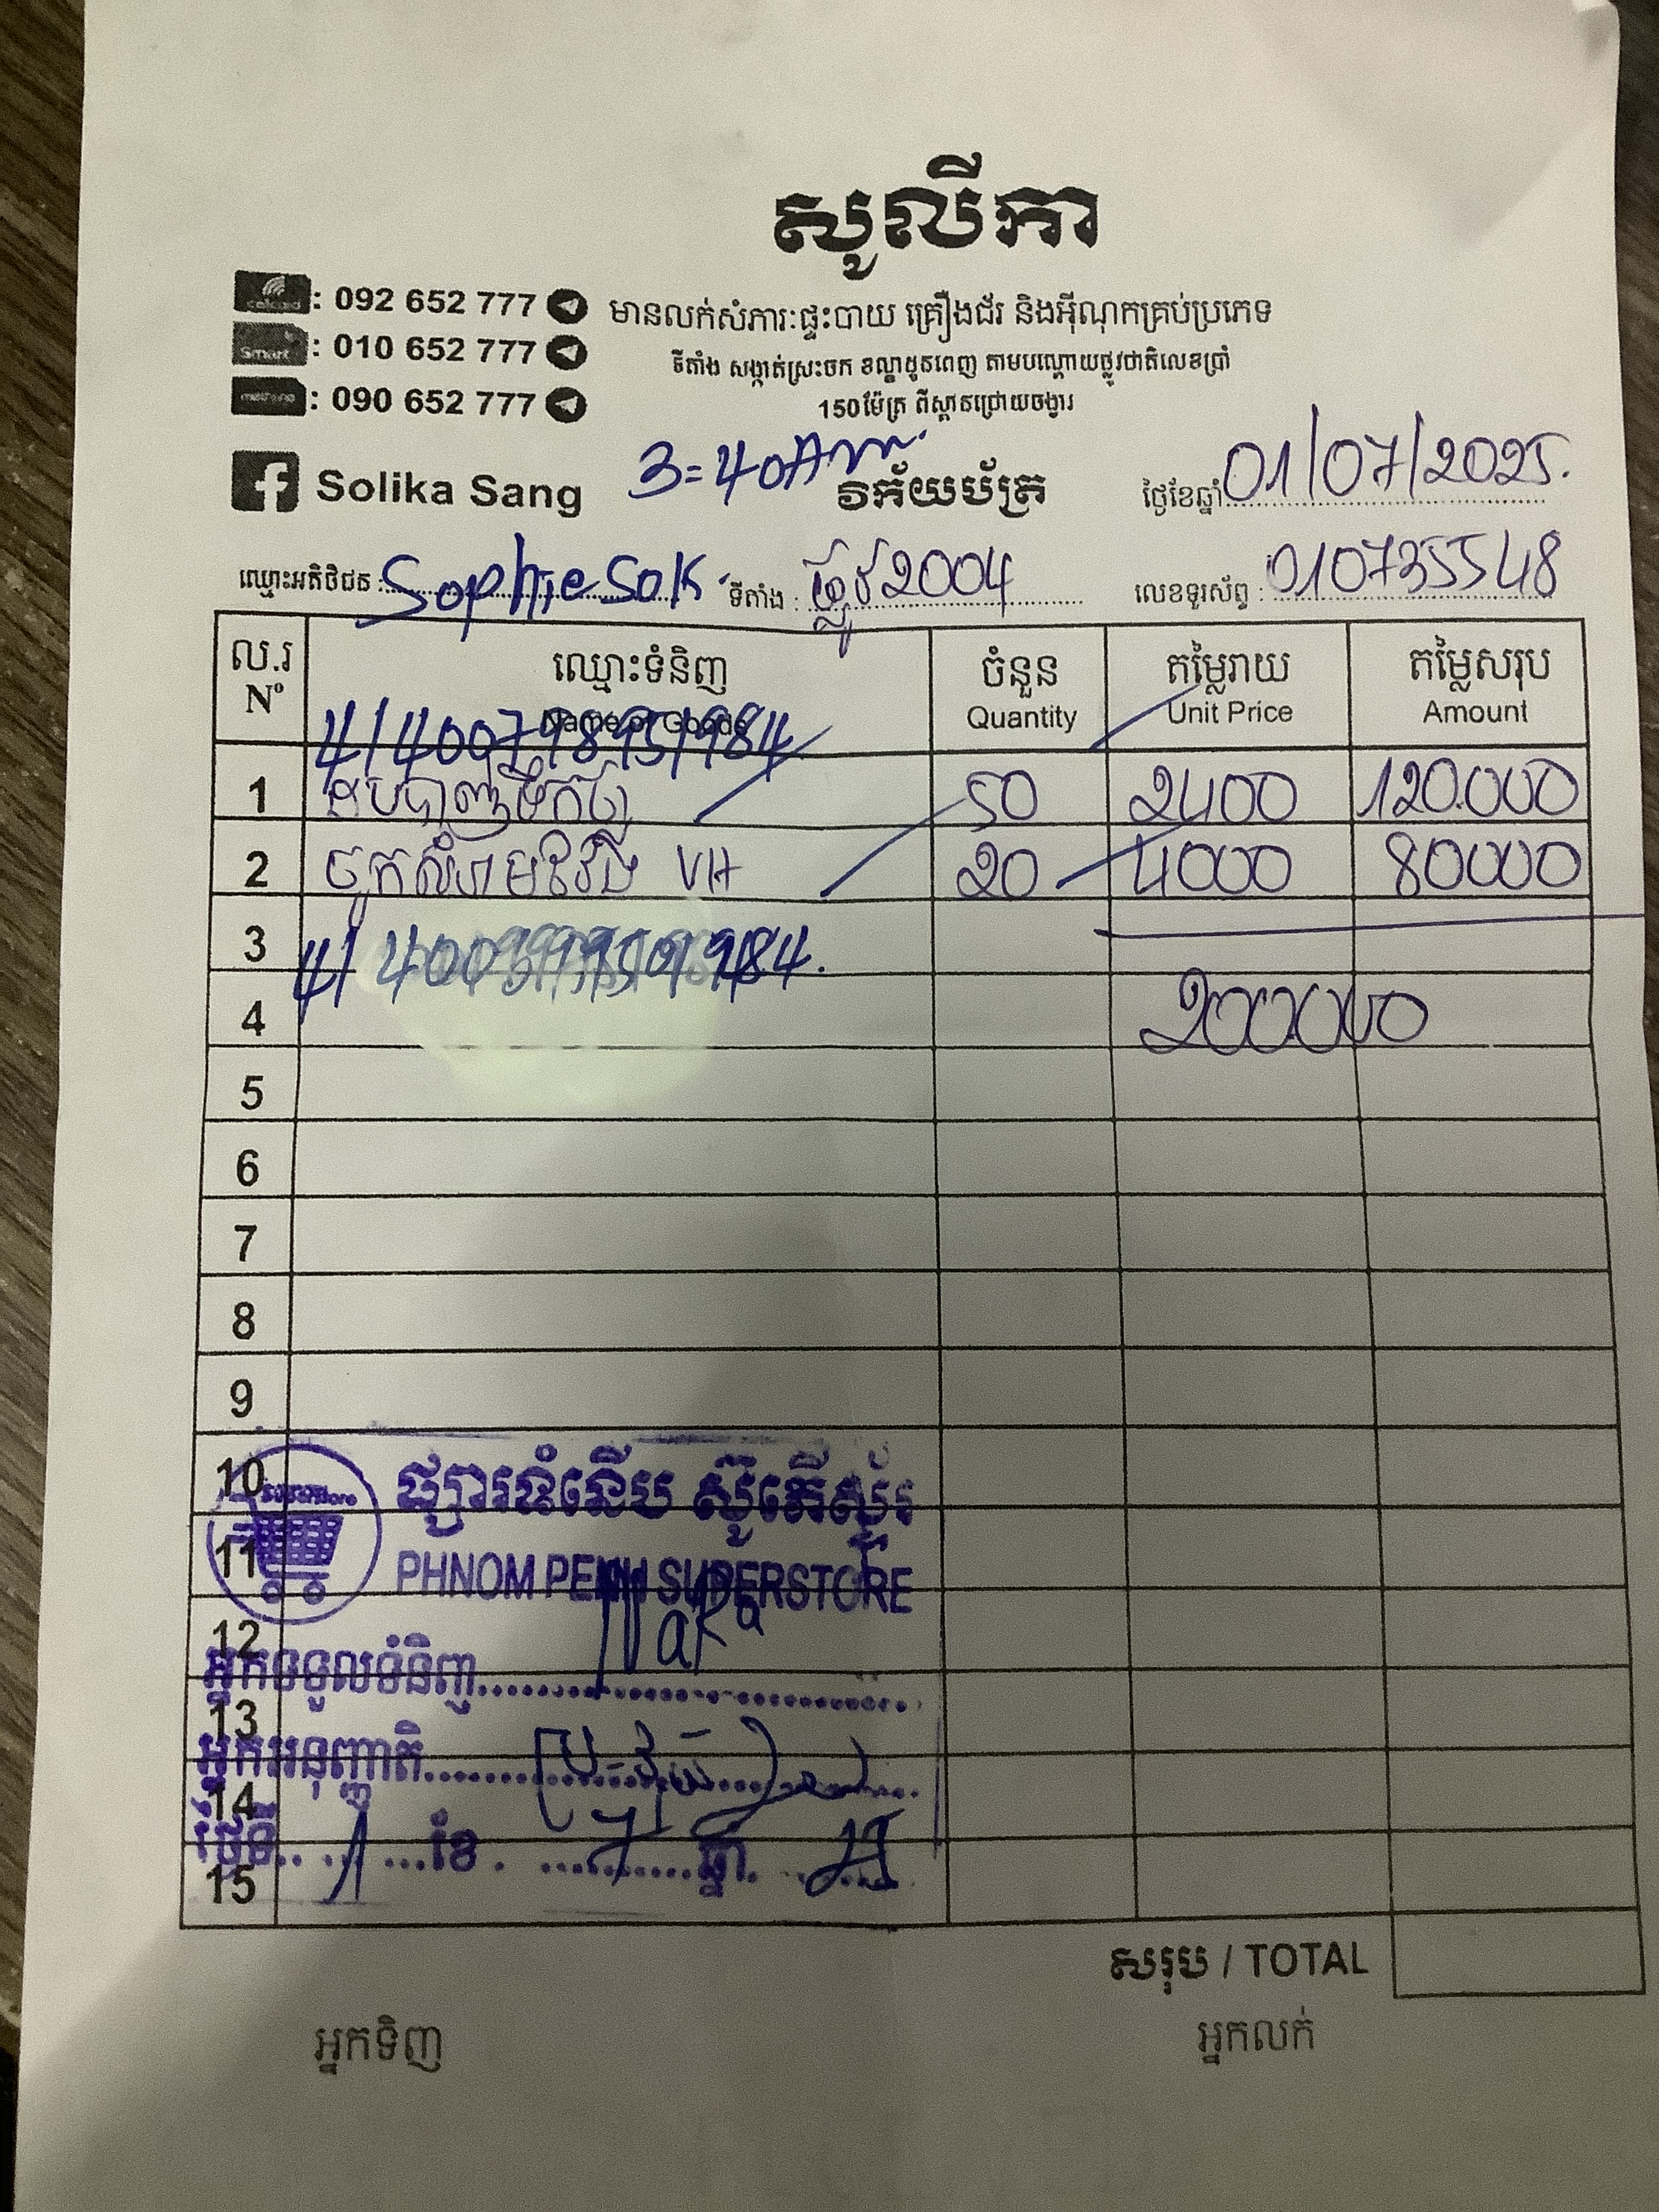 សូលីកា
cellcard : 092 652 777
Smart : 010 652 777
metfone : 090 652 777
មានលក់សំភារៈផ្ទះបាយ គ្រឿងជ័រ និងអ៊ីណុកគ្រប់ប្រភេទ
ទីតាំង សង្កាត់ស្រះចក ខណ្ឌដូនពេញ តាមបណ្តោយផ្លូវជាតិលេខប្រាំ
150ម៉ែត្រ ពីស្ពានជ្រោយចង្វារ
Solika Sang
3=40Am
វិក័យប័ត្រ
ថ្ងៃខែឆ្នាំ 01/07/2025.
ឈ្មោះអតិថិជន : Sophie Sok
ទីតាំង : ផ្លូវ 2004
លេខទូរស័ព្ទ : 010735548
ល.រ ឈ្មោះទំនិញ ចំនួន តម្លៃរាយ តម្លៃសរុប
N° Name of Goods Quantity Unit Price Amount
1 50 2400 120.000
2 VH 20 4000 80000
3
4 200.000
5
6
7
8
9
10 ផ្សារទំនើប ស៊ូភើស្ទ័រ
11 PHNOM PENH SUPERSTORE
12
អ្នកទទួលទំនិញ
13
អ្នកអនុញ្ញាតិ
14
ថ្ងៃទី 1 ខែ 7 ឆ្នាំ 25
15
សរុប / TOTAL
អ្នកទិញ អ្នកលក់